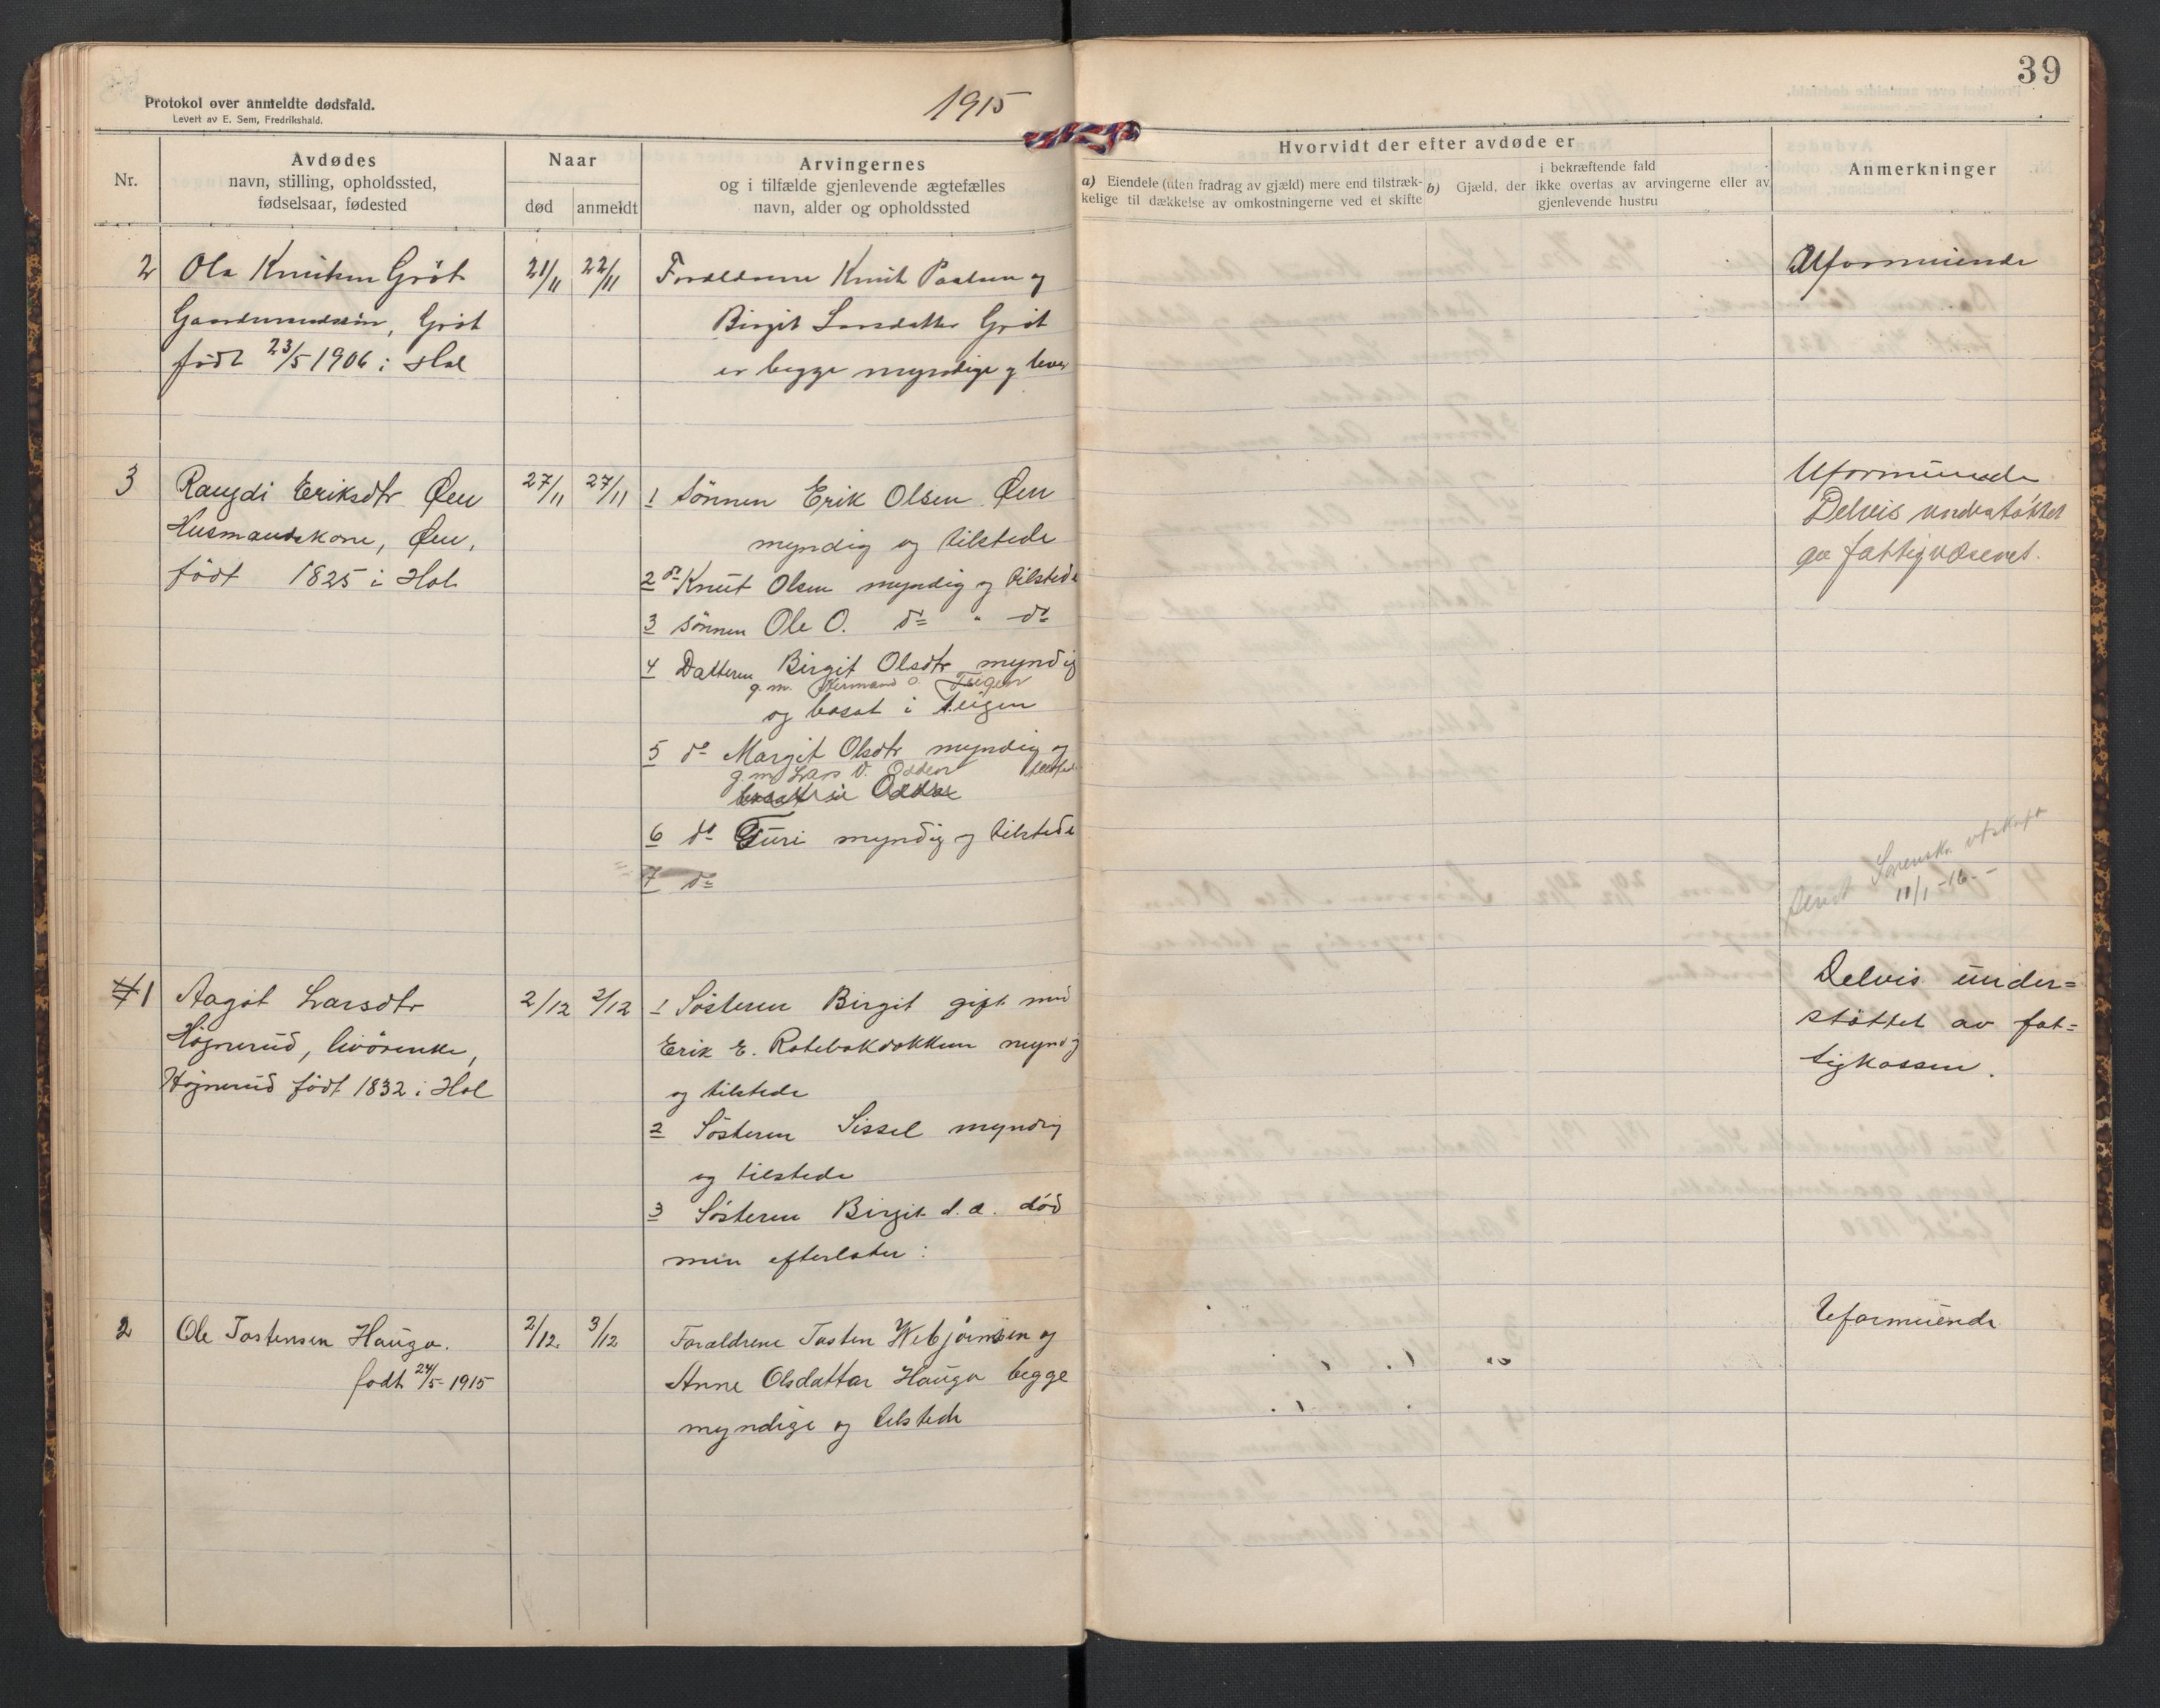 39
Protokol over anmeldte dødsfald.
Levert av E. Sem, Fredrikshald.
1915
Nr.
Avdødes
navn, stilling, opholdssted,
fødselsaar, fødested
Naar
død
anmeldt
Arvingernes
og i tilfælde gjenlevende ægtefælles
navn, alder og opholdssted
Hvorvidt der efter avdøde er
a) Eiendele (uten fradrag av gjæld) mere end tilstræk-
kelige til dækkelse av omkostningerne ved et skifte
i bekræftende fald
b) Gjæld, der ikke overtas av arvingerne eller av
gjenlevende hustru
Anmerkninger
2
Ola Knutsen Gröt
Gröt
født 23/5 1906 i Hol
21/11
22/11
Forældrene Knut Paalsen og
Birgit Larsdatter Gröt
er begge myndige og lever
Uformuende
3
Rangdi Eriksdtr Øen
Husmandskone, Øen,
födt 1825 i Hol
27/11
27/11
1 Sönnen Erik Olsen Øen
myndig og tilstede
2 do Knut Olsen myndig og tilstede
3 Sönnen Ole O. do " do
4 Datteren Birgit Olsdtr myndig
g.m. Hermand O. Teigen
og bosat i Teigen
5 do Margit Olsdtr myndig og
g.m. Lars O. Odden tilstede
6 do Turi myndig og tilstede
7 do
Uformuende
Delvis understöttet
av fattigvæsenet.
Sendt Sorensk. utskrift
11/1 -16.-
1
Aagot Larsdtr
Högnerud, livörenke,
Högnerud födt 1832 i Hol
2/12
2/12
1 Sösteren Birgit gift med
Erik E. Rotebakdokken myndig
og tilstede
2 Sösteren Sissel myndig
og tilstede
3 Sösteren Birgit d.æ. död
men efterlater:
Delvis under=
stöttet av fat=
tigkassen.
2
Ole Tostensen Hauga.
født 24/5-1915
2/12.
3/12
Forældrene Tosten Webjörnsen og
Anne Olsdatter Hauga begge
myndige og tilstede
Uformuende